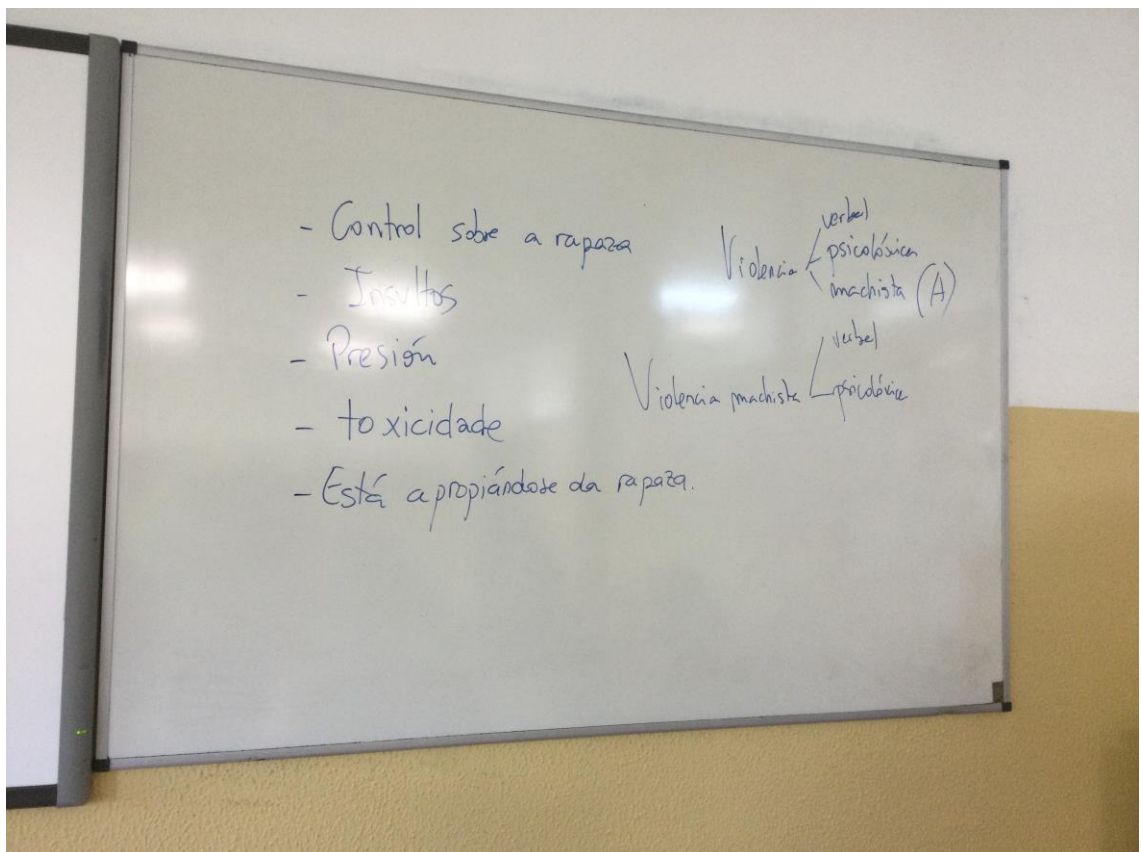 - Control sobre a rapaza
- Insultos
- Presión
- toxicidade
- Está apropiándose da rapaza.
verbal
Violencia psicolóxica
machista (A)
verbal
Violencia machista psicolóxica